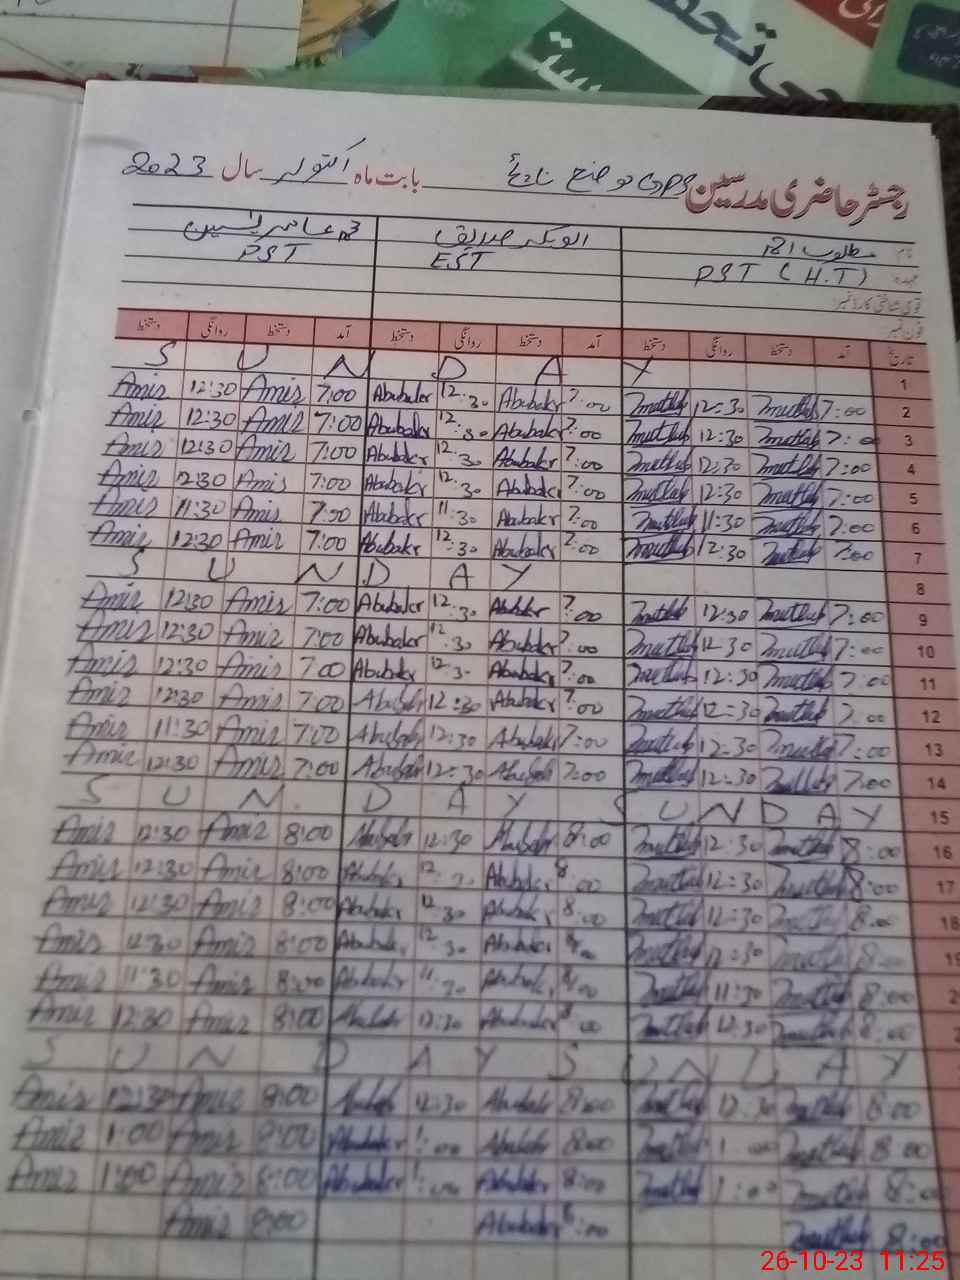 رجسٹر حاضری مدرسین GPS موضع بابت ماہ اکتوبر سال 2023
نام مطلوب احمد ابوبکر صدیق محمد عامر یٰسین
عہدہ PST (H.T) EST PST
قومی شناختی کارڈ نمبر:
فون نمبر
تاریخ آمد دستخط روانگی دستخط آمد دستخط روانگی دستخط آمد دستخط روانگی دستخط
S U N D A Y 1
Amir 12:30 Amir 7:00 Abubakr 12:30 Abubakr 7:00 Mutlub 12:30 Mutlub 7:00 2
Amir 12:30 Amir 7:00 Abubakr 12:30 Abubakr 7:00 Mutlub 12:30 Mutlub 7:00 3
Amir 12:30 Amir 7:00 Abubakr 12:30 Abubakr 7:00 Mutlub 12:30 Mutlub 7:00 4
Amir 12:30 Amir 7:00 Abubakr 12:30 Abubakr 7:00 Mutlub 12:30 Mutlub 7:00 5
Amir 11:30 Amir 7:00 Abubakr 11:30 Abubakr 7:00 Mutlub 11:30 Mutlub 7:00 6
Amir 12:30 Amir 7:00 Abubakr 12:30 Abubakr 7:00 Mutlub 12:30 Mutlub 7:00 7
S U N D A Y 8
Amir 12:30 Amir 7:00 Abubakr 12:30 Abubakr 7:00 Mutlub 12:30 Mutlub 7:00 9
Amir 12:30 Amir 7:00 Abubakr 12:30 Abubakr 7:00 Mutlub 12:30 Mutlub 7:00 10
Amir 12:30 Amir 7:00 Abubakr 12:30 Abubakr 7:00 Mutlub 12:30 Mutlub 7:00 11
Amir 12:30 Amir 7:00 Abubakr 12:30 Abubakr 7:00 Mutlub 12:30 Mutlub 7:00 12
Amir 11:30 Amir 7:00 Abubakr 12:30 Abubakr 7:00 Mutlub 12:30 Mutlub 7:00 13
Amir 12:30 Amir 7:00 Abubakr 12:30 Abubakr 7:00 Mutlub 12:30 Mutlub 7:00 14
S U N D A Y S U N D A Y 15
Amir 12:30 Amir 8:00 Abubakr 12:30 Abubakr 8:00 Mutlub 12:30 Mutlub 8:00 16
Amir 12:30 Amir 8:00 Abubakr 12:30 Abubakr 8:00 Mutlub 12:30 Mutlub 8:00 17
Amir 12:30 Amir 8:00 Abubakr 12:30 Abubakr 8:00 Mutlub 12:30 Mutlub 8:00 18
Amir 12:30 Amir 8:00 Abubakr 12:30 Abubakr 8:00 Mutlub 12:30 Mutlub 8:00 19
Amir 11:30 Amir 8:00 Abubakr 11:30 Abubakr 8:00 Mutlub 11:30 Mutlub 8:00
Amir 12:30 Amir 8:00 Abubakr 12:30 Abubakr 8:00 Mutlub 12:30 Mutlub 8:00
S U N D A Y S U N D A Y
Amir 12:30 Amir 8:00 Abubakr 12:30 Abubakr 8:00 Mutlub 12:30 Mutlub 8:00
Amir 1:00 Amir 8:00 Abubakr 1:00 Abubakr 8:00 Mutlub 1:00 Mutlub 8:00
Amir 1:00 Amir 8:00 Abubakr 1:00 Abubakr 8:00 Mutlub 1:00 Mutlub 8:00
Amir 8:00 Abubakr 8:00 Mutlub 8:00
26-10-23 11:25